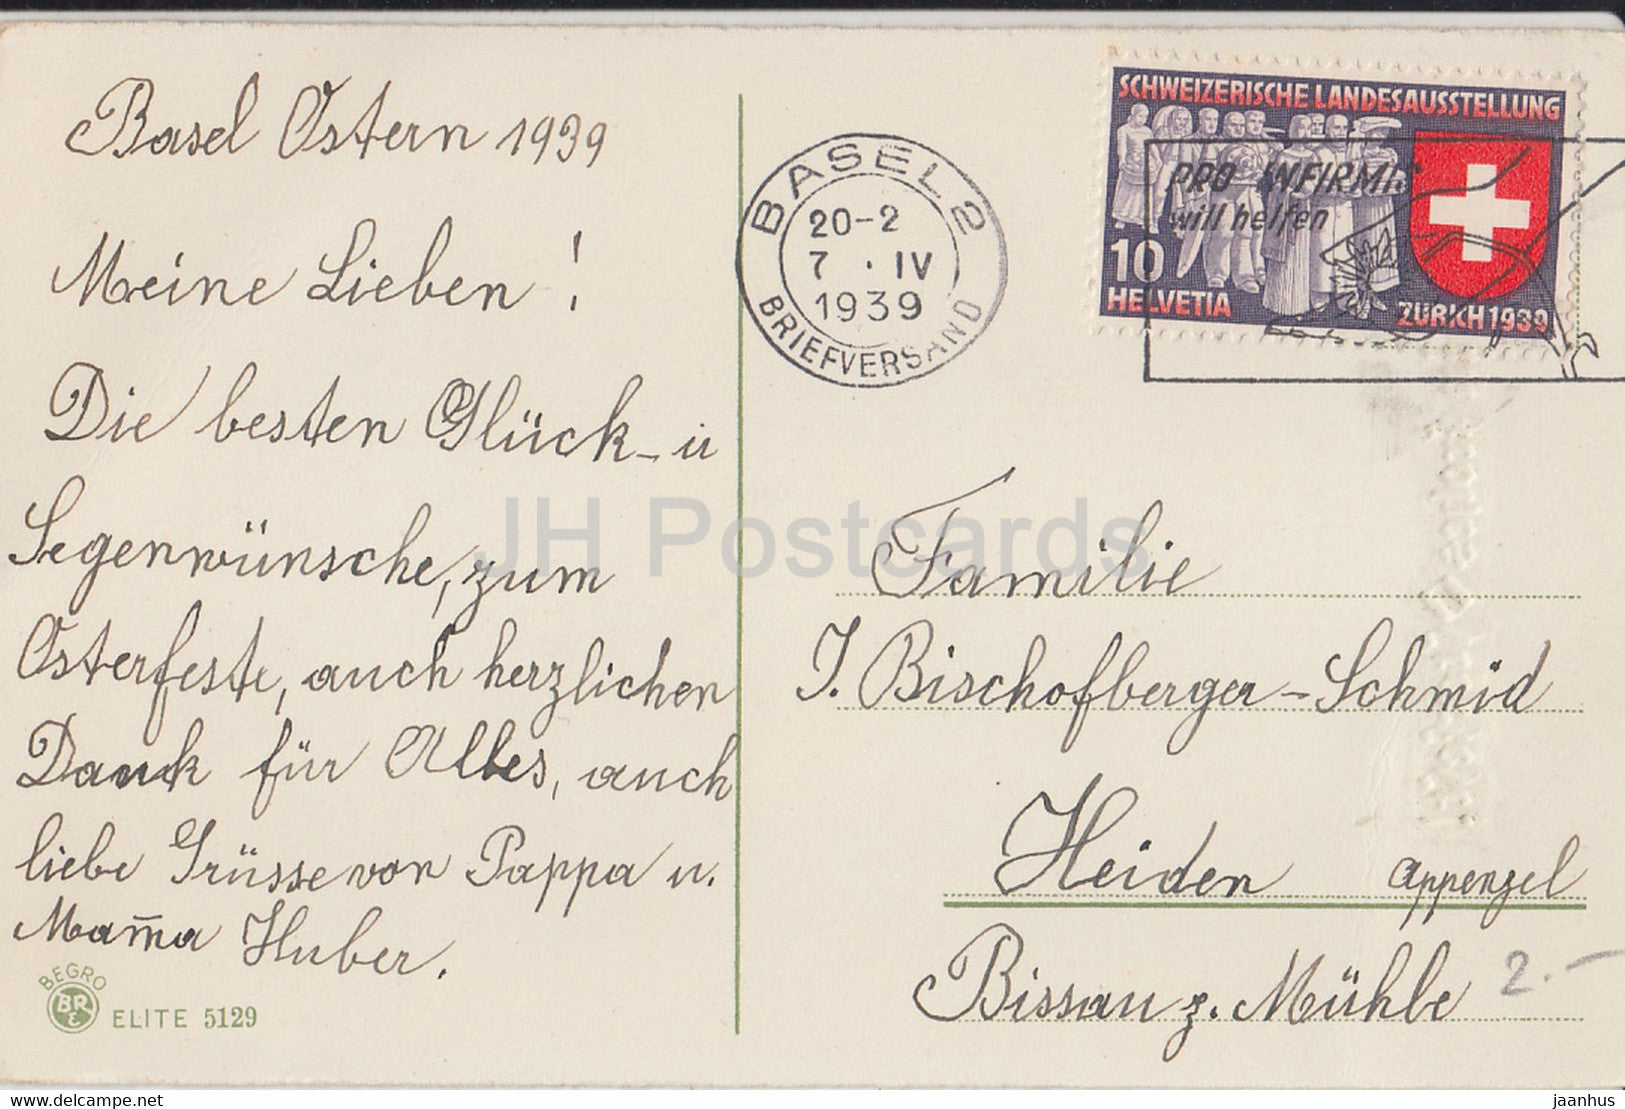 Basel Ostern 1939
Meine Lieben!
Die besten Glück- u
Segenwünsche, zum
Osterfeste, auch herzlichen
Dank für Alles, auch
liebe Grüsse von Pappa u.
Mam̅a Huber.
BEGRO
BR
ELITE 5129
BASEL 2
20-2
7 . IV
1939
BRIEFVERSAND
SCHWEIZERISCHE LANDESAUSSTELLUNG
PRO INFIRMIS
will helfen
10
HELVETIA
ZÜRICH 1939
Familie
J. Bischofberger-Schmid
Heiden Appenzel
Bissau z. Mühle
2.-
JH Postcards
https://www.delcampe.net
jaanhus